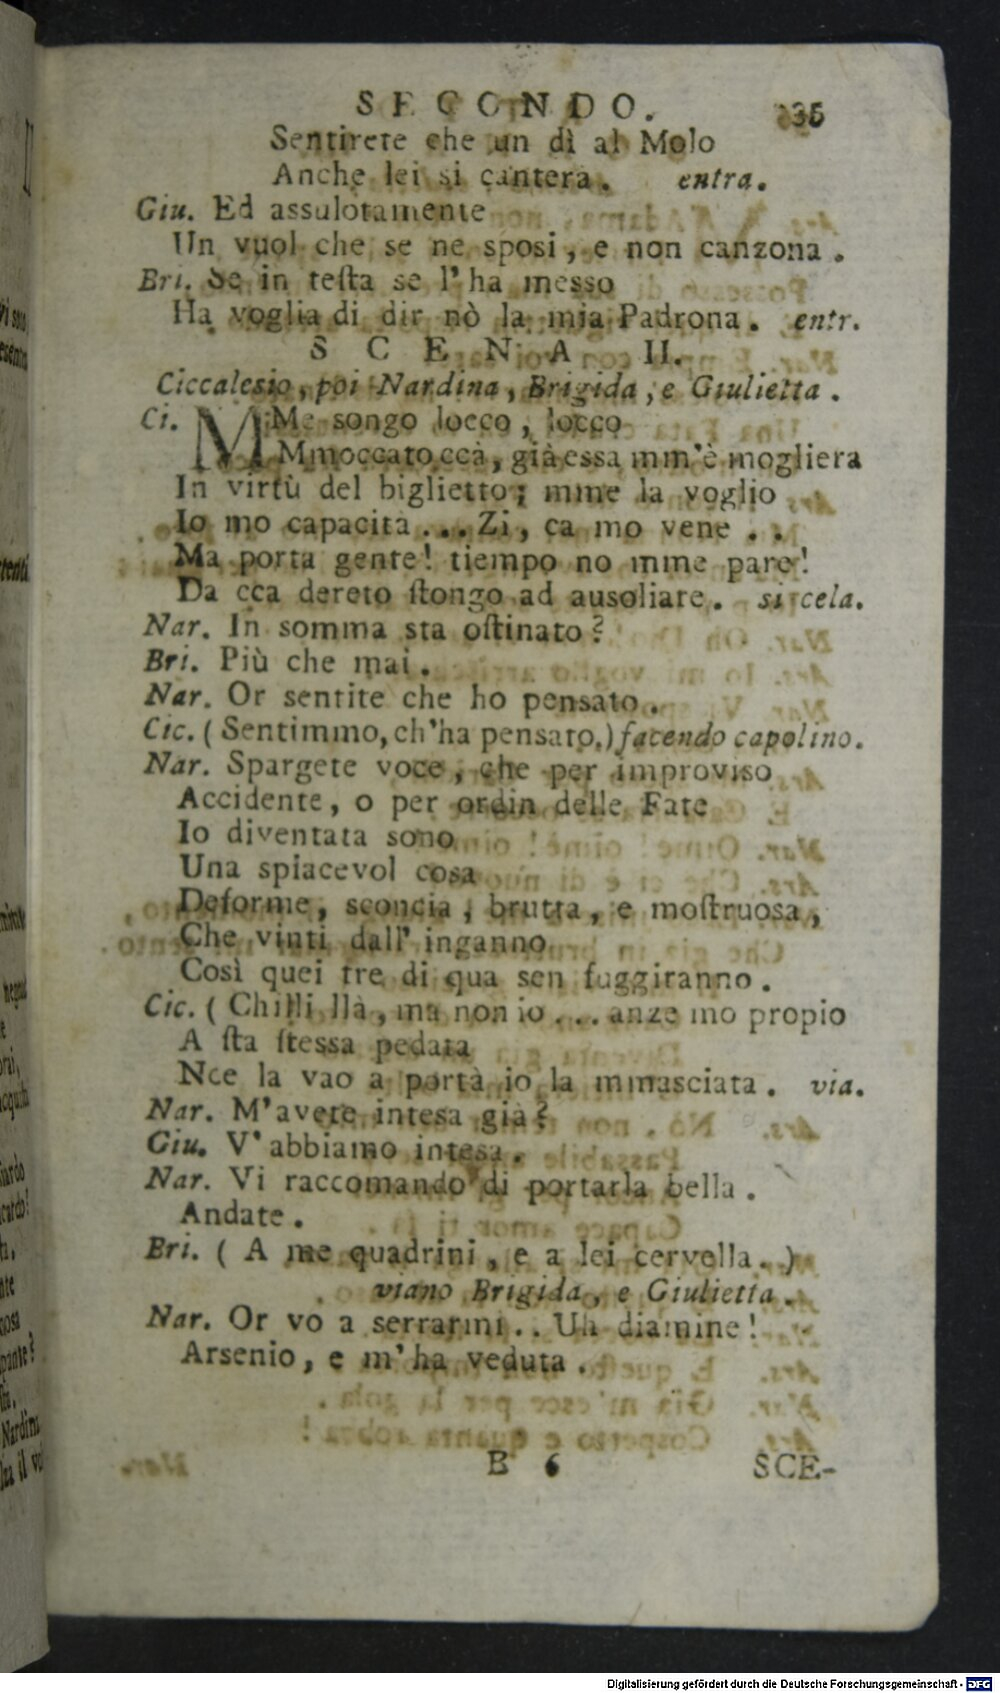 SECONDO. 35
Sentirete che un dì al Molo
Anche lei si canterà. entra.
Giu. Ed assulotamente
Un vuol che se ne sposi, e non canzona.
Bri. Se in teſta se l'ha messo
Ha voglia di dir nò la mia Padrona. entr.
SCENA II.
Ciccalesio, poi Nardina, Brigida, e Giulietta.
Ci. MMe songo locco, locco
Mmoccato ccà, già essa mm'è mogliera
In virtù del biglietto; mme la voglio
Io mo capacita... Zi, ca mo vene ..
Ma porta gente! tiempo no mme pare!
Da cca dereto ſtongo ad ausoliare. si cela.
Nar. In somma sta oſtinato?
Bri. Più che mai.
Nar. Or sentite che ho pensato.
Cic. (Sentimmo, ch'ha pensato.) facendo capolino.
Nar. Spargete voce, che per improviso
Accidente, o per ordin delle Fate
Io diventata sono
Una spiacevol cosa
Deforme, sconcia, brutta, e moſtruosa,
Che vinti dall' inganno
Così quei tre di qua sen fuggiranno.
Cic. (Chilli llà, ma non io... anze mo propio
A ſta ſtessa pedata
Nce la vao a portà io la mmasciata. via.
Nar. M'avete intesa già?
Giu. V'abbiamo intesa.
Nar. Vi raccomando di portarla bella.
Andate.
Bri. (A me quadrini, e a lei cervella.)
viano Brigida, e Giulietta.
Nar. Or vo a serrarmi.. Uh diamine!
Arsenio, e m'ha veduta.
B 6 SCE-
Digitalisierung gefördert durch die Deutsche Forschungsgemeinschaft - DFG